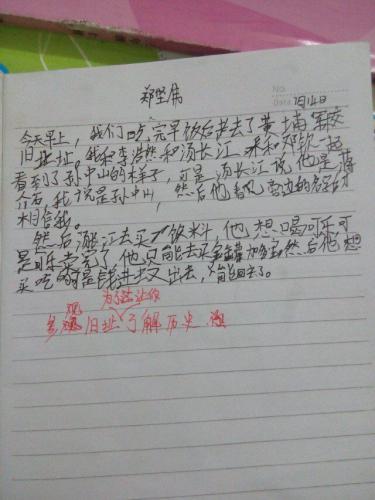 郑坚伟
No.
Date 7月14日
今天早上，我们吃完早饭后者去了黄土甫军校
旧土止址。我和李浩然和汤长江和郑钦一起
看到了孙中山的样子，可是汤长江说他是蒋
介石，我说是孙中山，然后他看见旁边的名字才
相信我。
然后汤长江去买了饮料，他想喝可乐可
是可乐卖完了，他只能去买金罐加多宝，然后他想
买吃的可是钱进 又出去，只能回来了。
为了让你
参观旧址了解历史